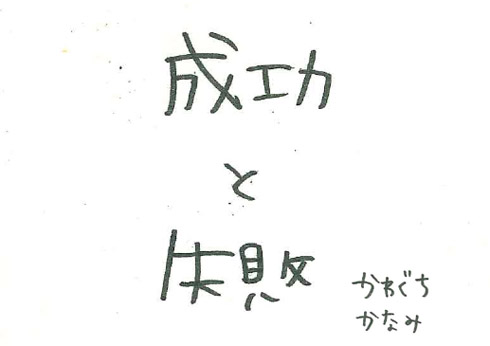 成功
と
失敗
かわぐち
かなみ